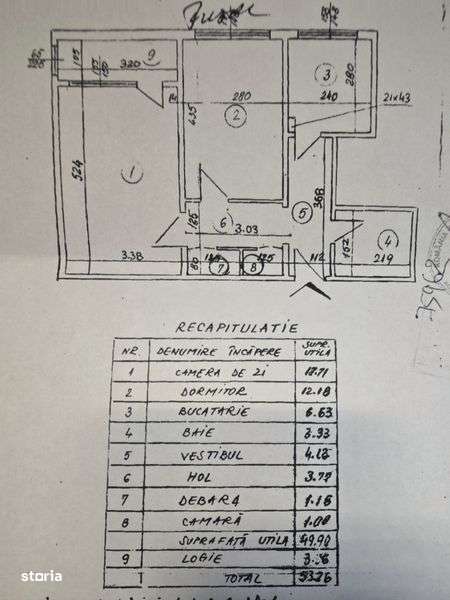 9
320
3
280
280
240
21x43
2
435
524
1
368
6
5
3.03
165
4
3.38
7
8
112
162
219
RECAPITULATIE
NR. DENUMIRE ÎNCĂPERE SUPR. UTILA
1 CAMERA DE ZI 17.71
2 DORMITOR 12.18
3 BUCATARIE 6.63
4 BAIE 3.33
5 VESTIBUL 4.12
6 HOL 3.77
7 DEBARA 1.16
8 CAMARĂ 1.00
SUPRAFAȚĂ UTILA 49.90
9 LOGIE 3.36
TOTAL 53.26
storia